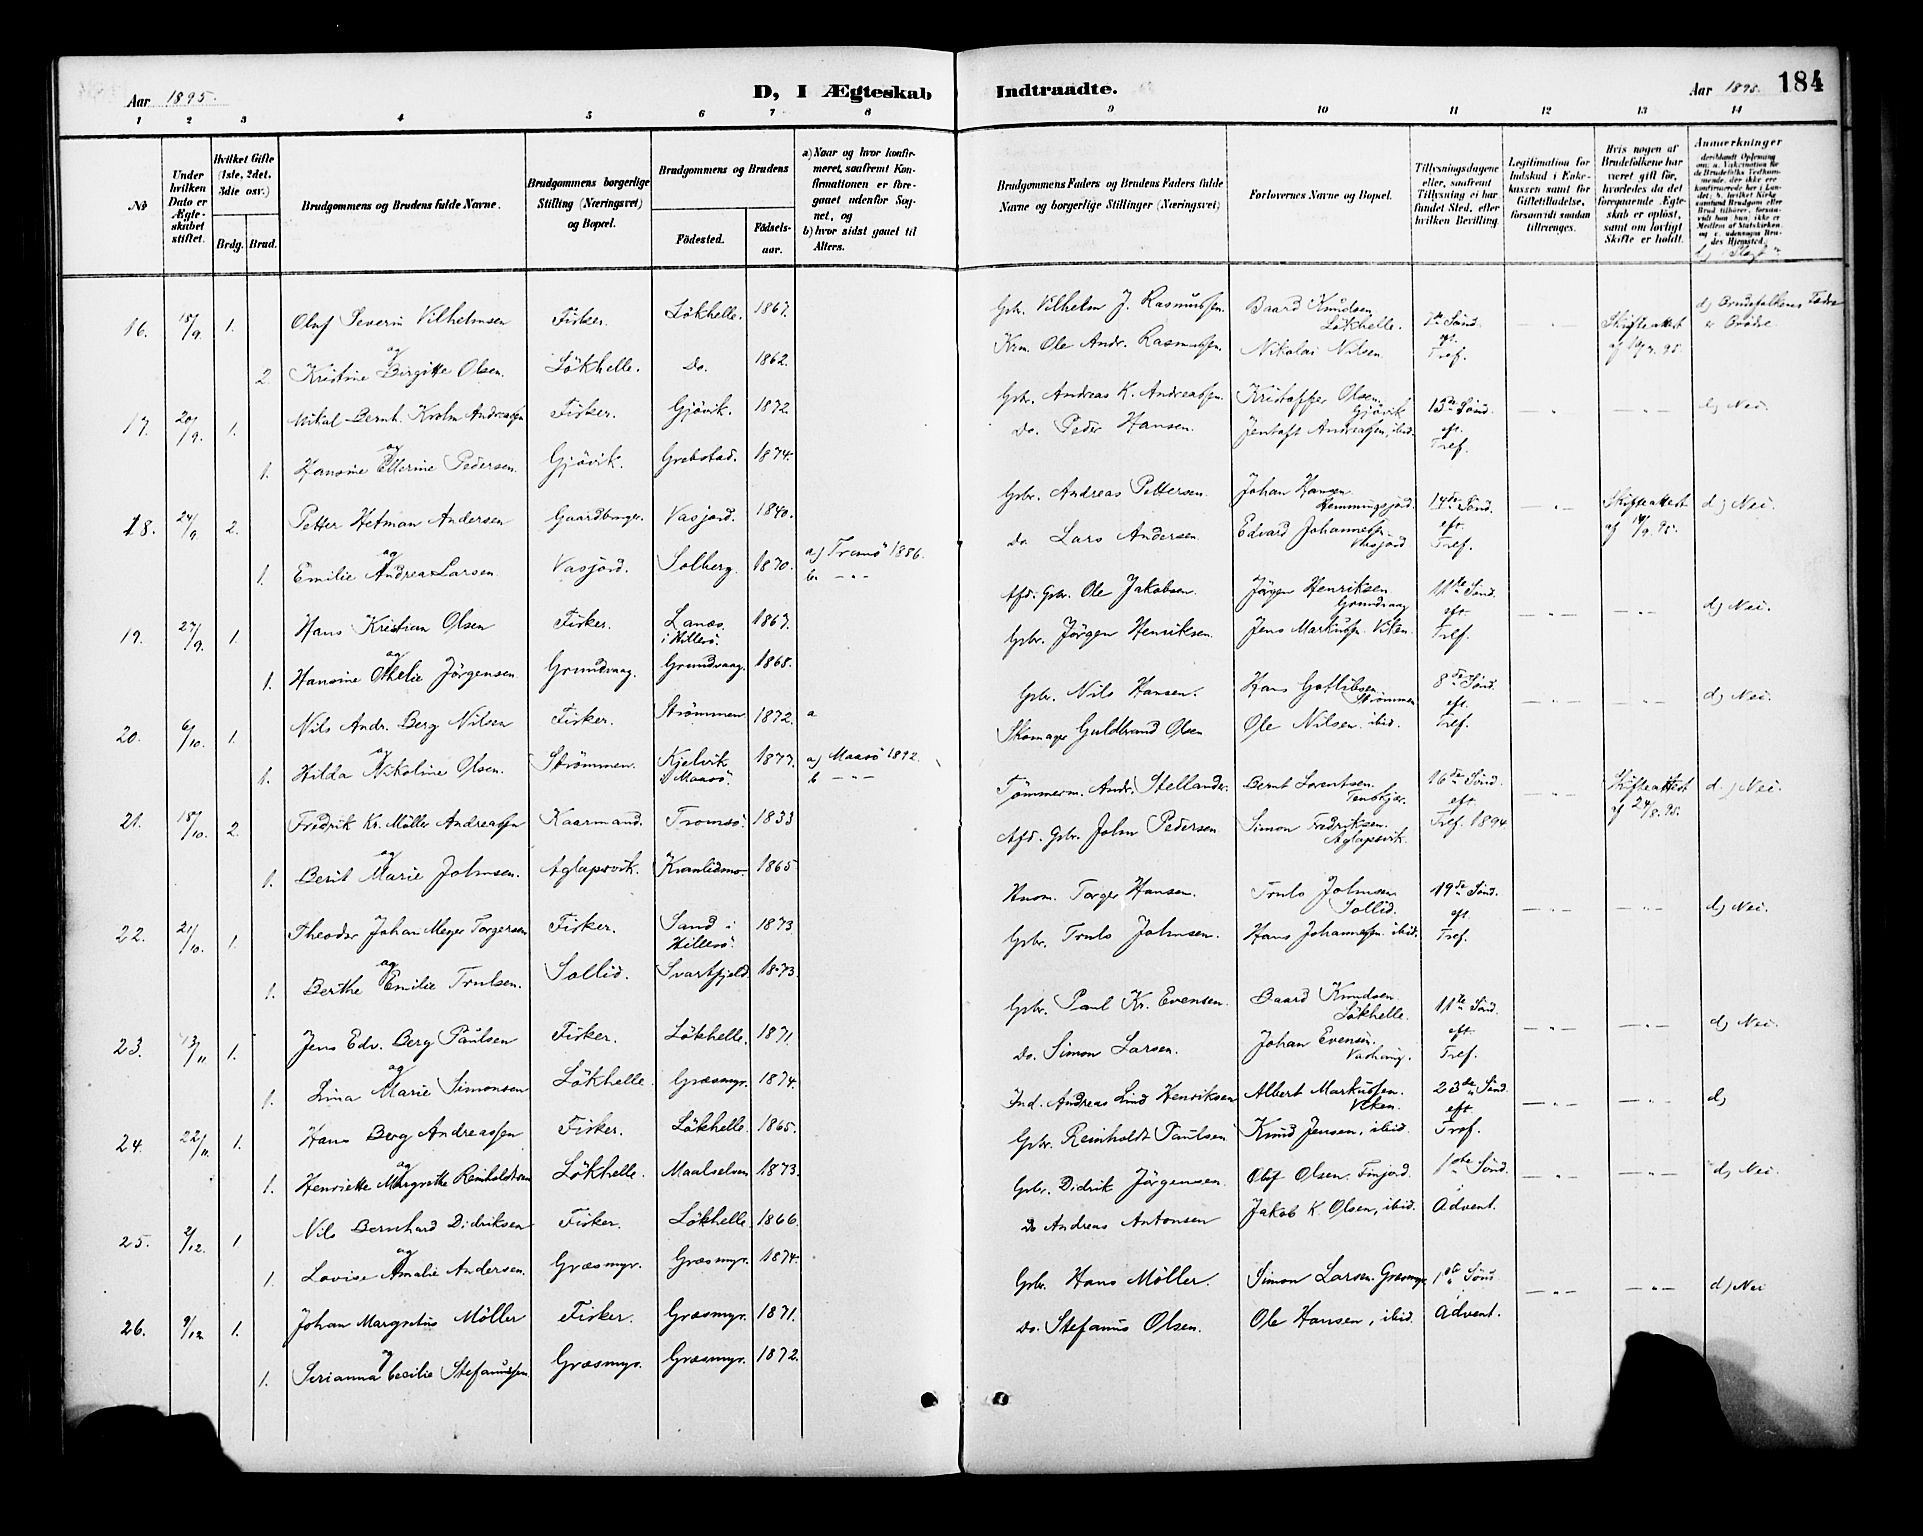 Aar 1895.
D, I Ægteskab
Indtraadte.
Aar 1895. 184
1 2 3 4 5 6 7 8 9 10 11 12 13 14
No
Under hvilken Dato er Ægteskabet stiftet.
Hvilket Gifte (1ste, 2det, 3die osv.)
Brdg. Brud.
Brudgommens og Brudens fulde Navne.
Brudgommens borgerlige Stilling (Næringsvei) og Bopæl.
Brudgommens og Brudens
Fødested.
Fødselsaar.
a) Naar og hvor konfirmeret, saafremt Konfirmationen er foregaaet udenfor Sognet, og
b) hvor sidst gaaet til Alters.
Brudgommens Faders og Brudens Faders fulde Navne og borgerlige Stillinger (Næringsvei)
Forlovernes Navne og Bopæl.
Tillysningsdagene eller, saafremt Tillysning ei har fundet Sted, efter hvilken Bevilling.
Legitimation for Indskud i Enkekassen samt for Giftetilladelse, forsaavidt saadan tiltrænges.
Hvis nogen af Brudefolkene har været gift før, hvorledes da det foregaaende Ægteskab er opløst, samt om lovligt Skifte er holdt.
Anmærkninger
d) Slægt
16. 18/9. 1. Oluf Severin Vilhelmsen Fisker. Lökhelle. 1867. Gbr. Vilhelm J. Rasmussen. Baard Knudsen Lökhelle. 7de Sønd. — " — Skifteattest d) Brudefolkenes Fædre er Brødre
og
2. Kristine Birgitte Olsen. Lökhelle. Do. 1862. Krm. Ole Andr. Rasmussen. Nikolai Nilsen eft. Tref.
17. 20/9. 1. Mikal Bernh. Krohn Andreassen Fisker. Gjövik. 1872. Gbr. Andreas K. Andreassen. Kristoffer Olsen. Gjövik 13de Sønd. — " — — " — d) Nei.
og
1. Hansine Ellerine Pedersen. Gjövik. Grebstad. 1874. Do. Peder Hansen. Jentoft Andreassen, ibid. eft. Tref.
18. 24/9. 2. Petter Hetman Andersen Gaardbruger. Vasjord. 1840. Gbr. Andreas Pettersen. Johan Hansen Hemmingsjord. 14de Sønd. — " — Skifteattest d) Nei.
og
1. Emilie Andrea Larsen. Vasjord. Solberg. 1870. a) Tromsö 1886. b — " — Do. Lars Andersen. Edvard Johannessen Vasjord eft. Tref.
19. 27/9. 1. Hans Kristian Olsen Fisker. Lanes i Hillesö. 1867. Afd. Gbr. Ole Jakobsen. Jörgen Henriksen Grundvaag 11te Sønd. — " — — " — d) Nei.
og
1. Hansine Othelie Jörgensen Grundvaag. Grundvaag. 1868. Gbr. Jörgen Henriksen. Jens Markussen. Viken. eft. Tref.
20. 6/10. 1. Nils Andr. Berg Nilsen Fisker. Strömmen 1872. a Gbr. Nils Hansen. Hans Gottlibsen Strömmen 8de Sønd. — " — — " — d) Nei.
og
1. Hilda Nikoline Olsen. Strömmen. Kjelvik i Maasö. 1877. a) Maasö 1892. b — " — Skomager Guldbrand Olsen Ole Nilsen ibid. eft. Tref.
21. 18/10. 2. Fredrik Kr. Möller Andreassen Kaarmand. Tromsö. 1833 Tömmerm. Andr. Stellander. Bernt Lorentsen. Tenskjær. 16de Sønd. — " — Skifteattest af 24/8.95. d.) Nei.
og
1. Berit Marie Johnsen. Aglapsvik. Kvanlidmo. 1865 Afd. Gbr. John Pedersen Simon Fredriksen. Aglapsvik eft. Tref. 1894.
22. 21/10. 1. Theodor Johan Meyer Torgersen Fisker. Sand i Hillesö. 1873 Hnom. Torger Hansen. Truls Johnsen Sollid. 19de Sønd. — " — — " — d) Nei.
og
1. Berthe Emilie Trulsen. Sollid. Svartfjeld. 1873. Gbr. Truls Johnsen. Hans Johannessen ibid. eft. Tref.
23. 13/11 1. Jens Edv. Berg Paulsen Fisker. Lökhelle. 1871. Gbr. Paul Kr. Evensen. Baard Knudsen Lökhelle. 11te Sønd. — " — — " — d) Nei.
og
1. Lina Marie Simonsen Lökhelle. Græsmyr. 1874. Do. Simon Larsen. Johan Evensen. eft. Tref.
24. 22/11. 1. Hans Berg Andreassen Fisker. Lökhelle. 1865. Ind. Andreas Lind Henriksen Albert Markussen. Viken. 23de Sønd — " — — " — d)
og
1. Henriette Margrethe Reinholdtsen Lökhelle. Maalselven 1873. Gbr. Reinholdt Paulsen Knud Jensen, ibid. eft. Tref.
25. 2/12. 1. Nils Bernhard Didriksen Fisker. Lökhelle 1866. Gbr. Didrik Jörgensen. Olaf Olsen. Finjord. 1ste Sønd. — " — — " — d) Nei.
og
1. Lovise Amalie Andersen. Græsmyr. Græsmyr. 1874. Do Andreas Antonsen Jakob K. Olsen, ibid. i Advent.
26. 9/12 1. Johan Margretus Möller Fisker. Græsmyr. 1871. Gbr. Hans Möller. Simon Larsen. Græsmyr. 1ste Sønd — " — — " — d) Nei
og
1. Serianna Cecilie Stefanussen Græsmyr. Græsmyr. 1872. Do. Stefanus Olsen. Ole Hansen, ibid. i Advent.